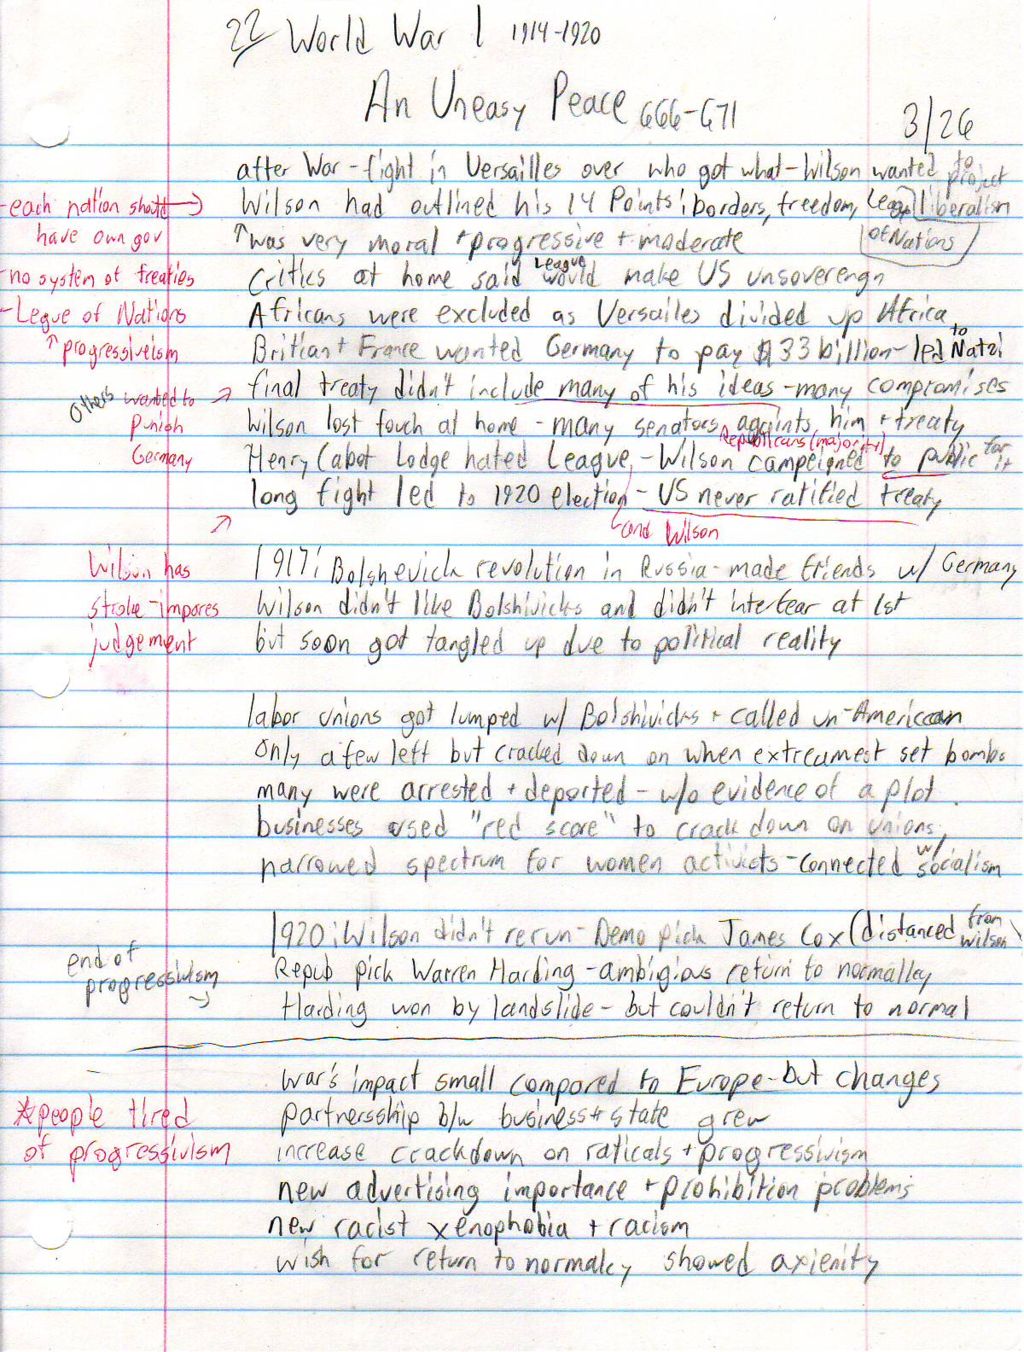 22 World War 1 1914-1920
An Uneasy Peace 666-671
3/26
after War - fight in Versailles over who got what - Wilson wanted to project liberalism
Wilson had outlined his 14 Points: borders, freedom, League of Nations
-each nation should have own gov
↑ was very moral + progressive + moderate
-no system of treaties
Critics at home said League would make US unsoverengn
-Legue of Nations
Africans were excluded as Versailes divided up Africa
↑ progressiveism
Britian + France wanted Germany to pay $33 billion - led to Natzi
Others wanted to punish Germany
final treaty didn't include many of his ideas - many compromises
Wilson lost touch at home - many senators againts him + treaty
Republicans (majority)
Henry Cabot Lodge hated League, - Wilson campeigned to public for it
and Wilson
long fight led to 1920 election - US never ratified treaty
Wilson has stroke - impares judgement
1917: Bolshevick revolution in Russia - made friends w/ Germany
Wilson didn't like Bolshivicks and didn't interfear at 1st
but soon got tangled up due to political reality
labor unions got lumped w/ Bolshivicks + called un-American
Only a few left but cracked down on when extreamest set bombs
many were arrested + deported - w/o evidence of a plot.
businesses used "red scare" to crack down on unions,
narrowed spectrum for women activists - connected w/ socialism
1920: Wilson didn't rerun - Demo pick James Cox (distanced from Wilson)
end of progressivism
Repub pick Warren Harding - ambigious return to normalley
Harding won by landslide - but couldn't return to normal
War's impact small compared to Europe - but changes
*people tired of progressivism
partnersship b/w business + state grew
increase crackdown on raticals + progressivism
new advertising importance + prohibition problems
new racist xenophobia + racism
wish for return to normalcy showed axienity